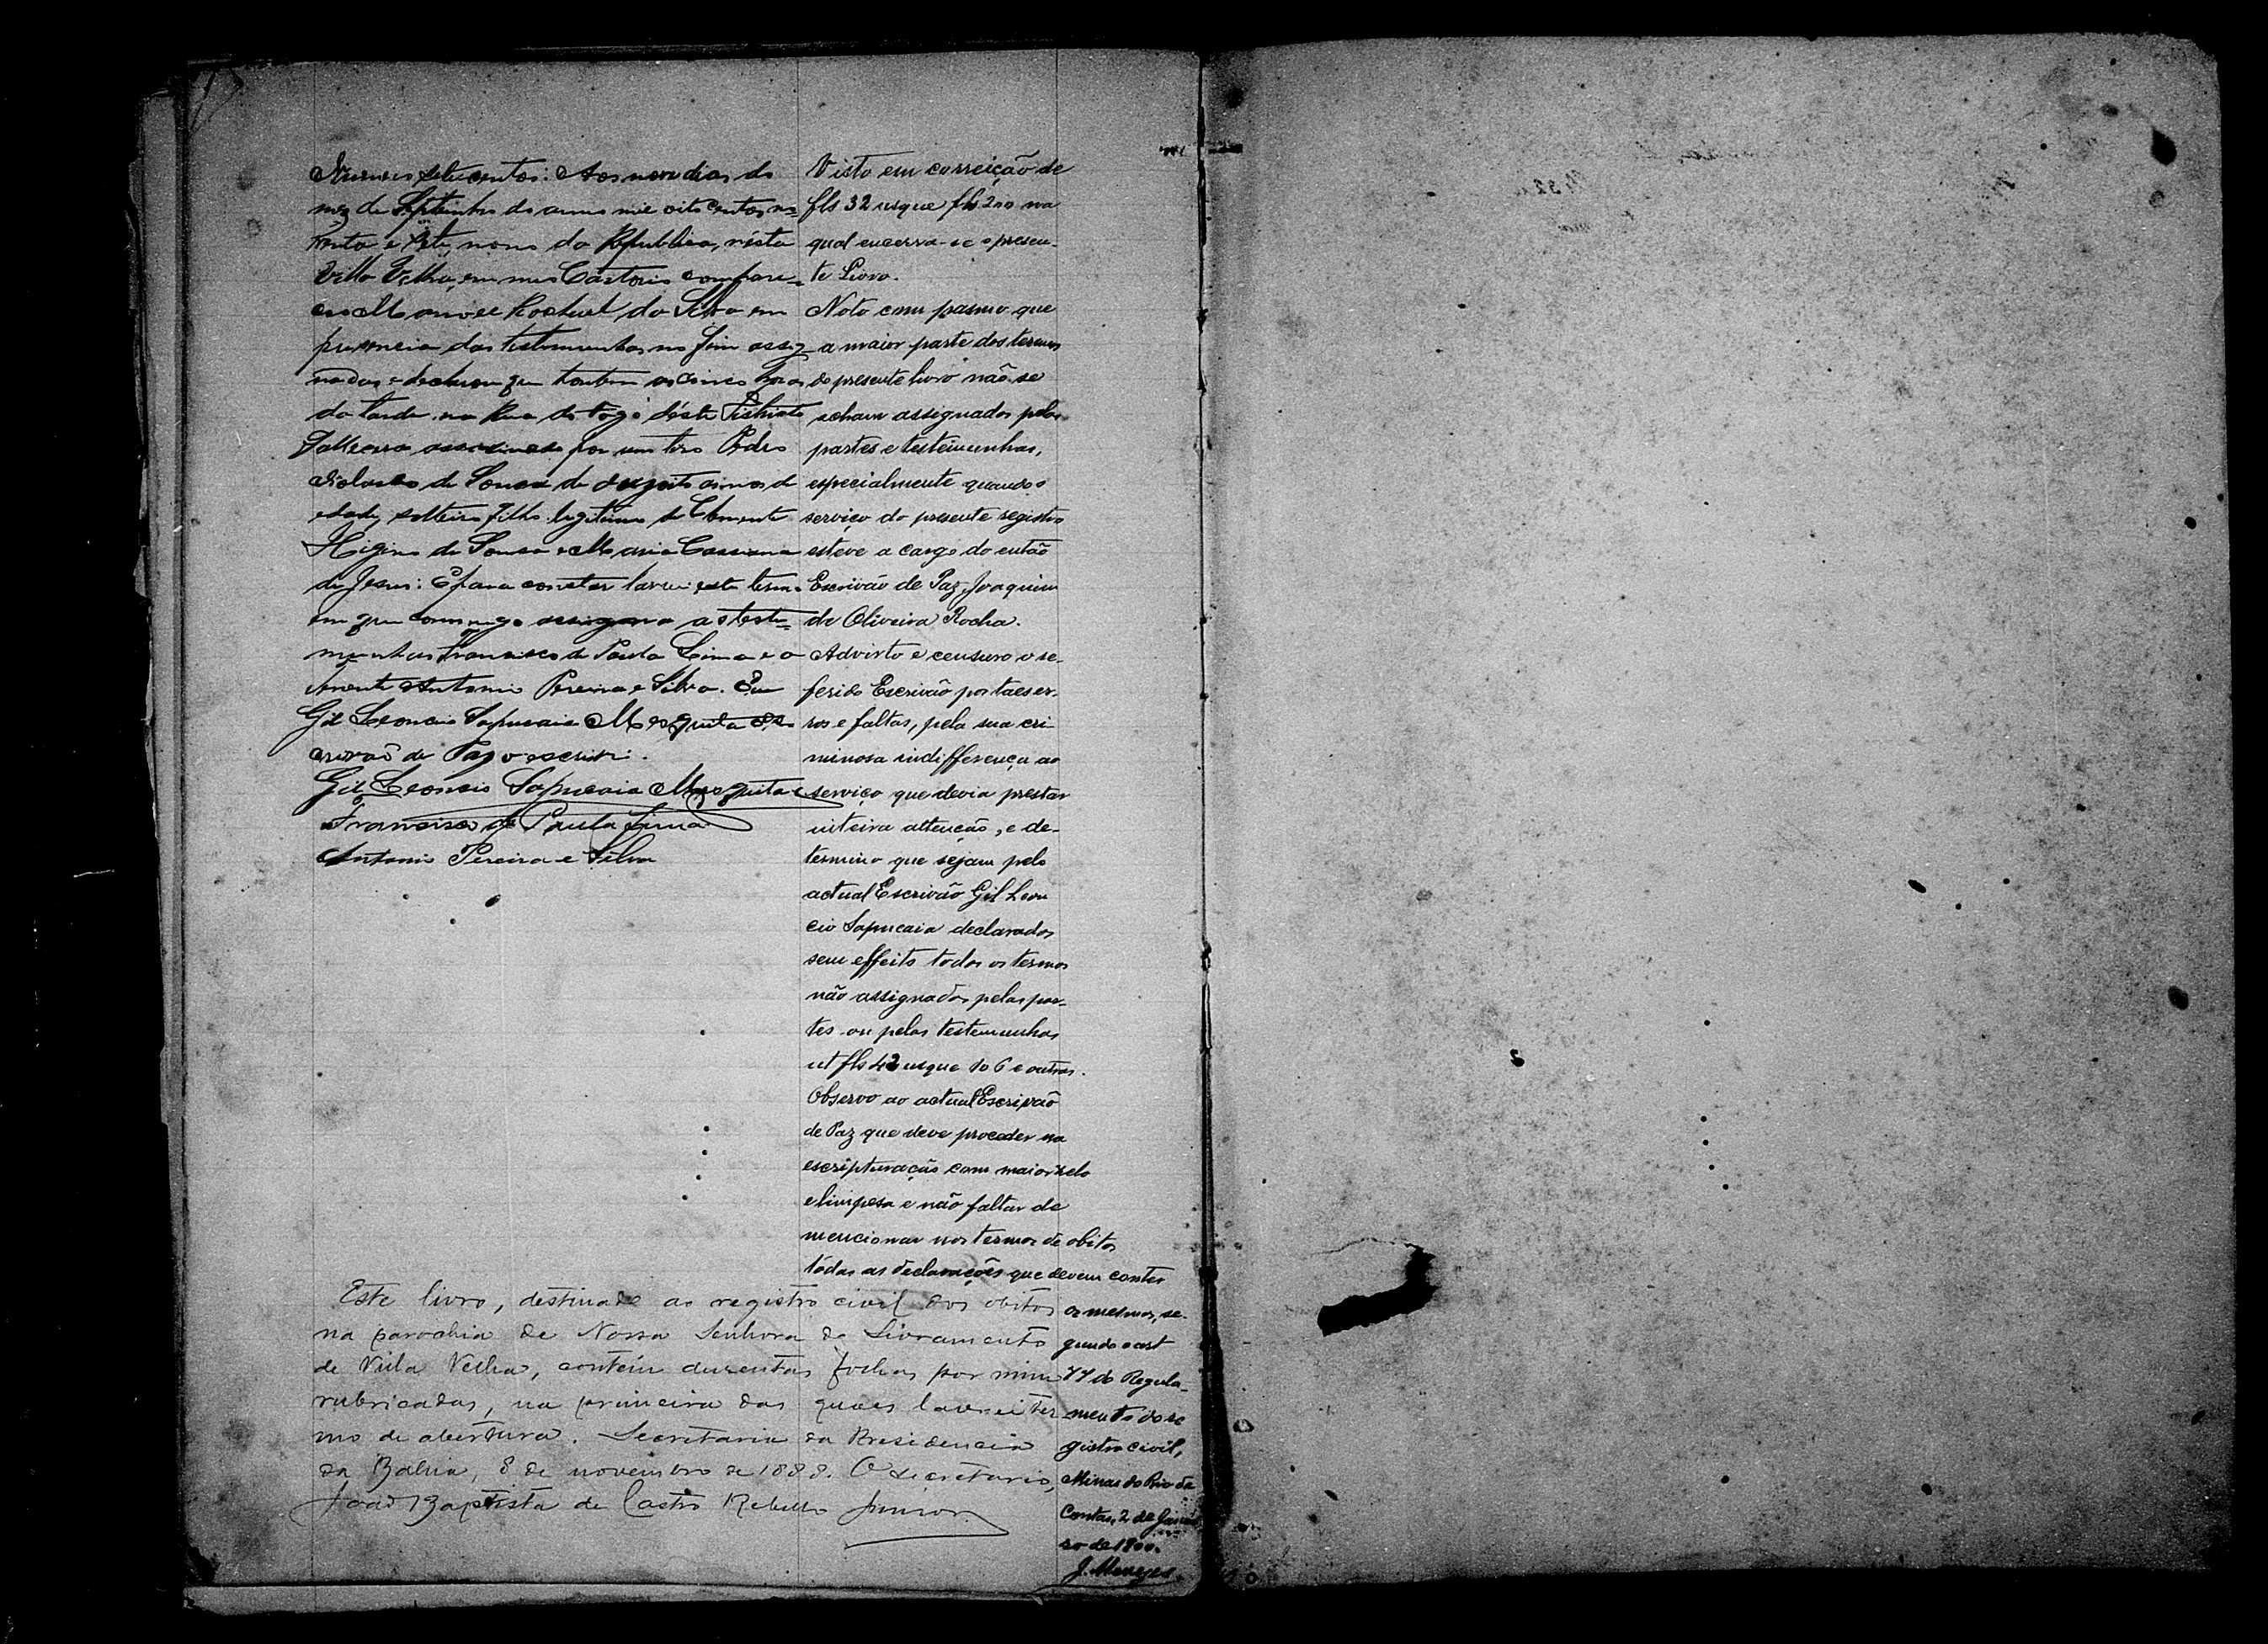 Numero sete centos: Aos nove dias do
mez de Septembro do anno mil oito centos no-
venta e sete, nono da Republica, nésta
Villa Velha, em meu Cartorio compare-
ceu Manoel Rochael da Silva em
presencia das testemunhas no fim assig
nadas e declarou que hontem as cinco horas
da tarde na Rua do Fogo déste Districto
Falleceu assassinado por um tiro Pedro
de Sousa de dezoito annos de
edade, solteiro, filho legitimo de Clemente
Higino de Sousa e Maria Cassiana
de Jesus: E para constar lavrei este termo
em que commigo assigna as teste-
munhas Francisco de Paula Lima e o
Antonio Pereira e Silva. Eu
Gil Leoncio Sapucaia Mesquita Es
crivão de Paz o escrevi.
Gil Leoncio Sapucaia Mesquita
Francisco de Paula Lima
Antonio Pereira e Silva
Visto em correição de
fls 32 usque fls 200 na
qual encerra-se o presen-
te Livro.
Noto com pasmo que
a maior parte dos termos
do presente livro não se
acham assignados pelas
partes e testemunhas,
especialmente quando o
serviço do presente registro
esteve a cargo do então
Escrivão de Paz Joaquim
de Oliveira Rocha.
Advirto e censuro o re-
ferido Escrivão por taes er-
ros e faltas, pela sua cri
minosa indifferença ao
serviço que devia prestar
inteira attenção, e de-
termino que sejam pelo
actual Escrivão Gil Leon
cio Sapucaia declarados
sem effeito todos os termos
não assignados pelas par-
tes ou pelas testemunhas
ut fls 42 usque 106 e outros.
Observo ao actual Escrivão
de Paz que deve proceder na
escripturação com maior zelo
e limpesa e não faltar de
mencionar nos termos de obitos
todas as declarações que devem conter
os mesmos, se-
gundo o art
77 do Regula-
mento do re
gistro civil,
Minas do Rio de
Contas, 2 de Janei
ro de 1900.
J. Menezes.
Este livro, destinado ao registro civil dos obitos
na parochia de Nossa Senhora do Livramento
de Villa Velha, contém duzentas folhas por mim
rubricadas, na primeira das quaes lavrei ter
mo de abertura. Secretaria da Presidencia
da Bahia, 8 de novembro de 1888. O secretario,
João Baptista de Castro Rebello Junior